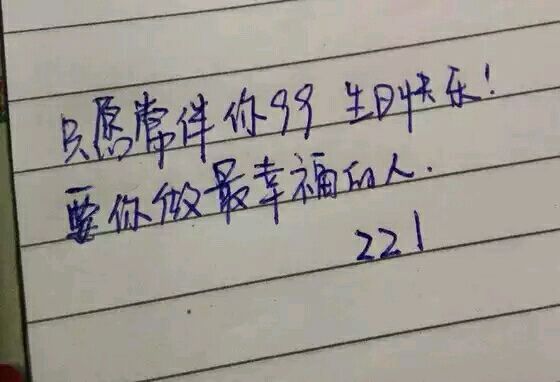 只愿常伴你99 生日快乐!
要你做最幸福的人.
221